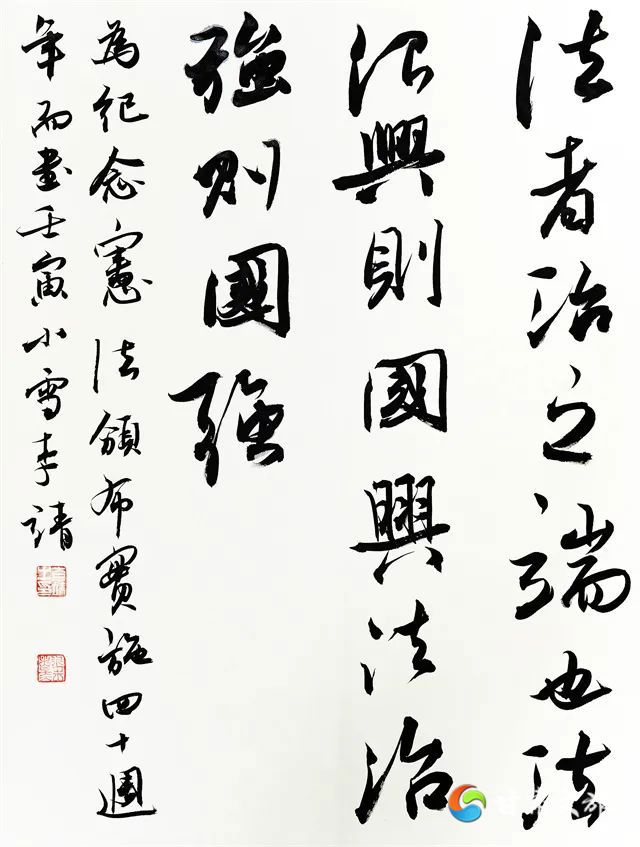 法者治之端也法
治興則國興法治
強則國強
為紀念憲法頒布實施四十週
年而書壬寅小雪李靖